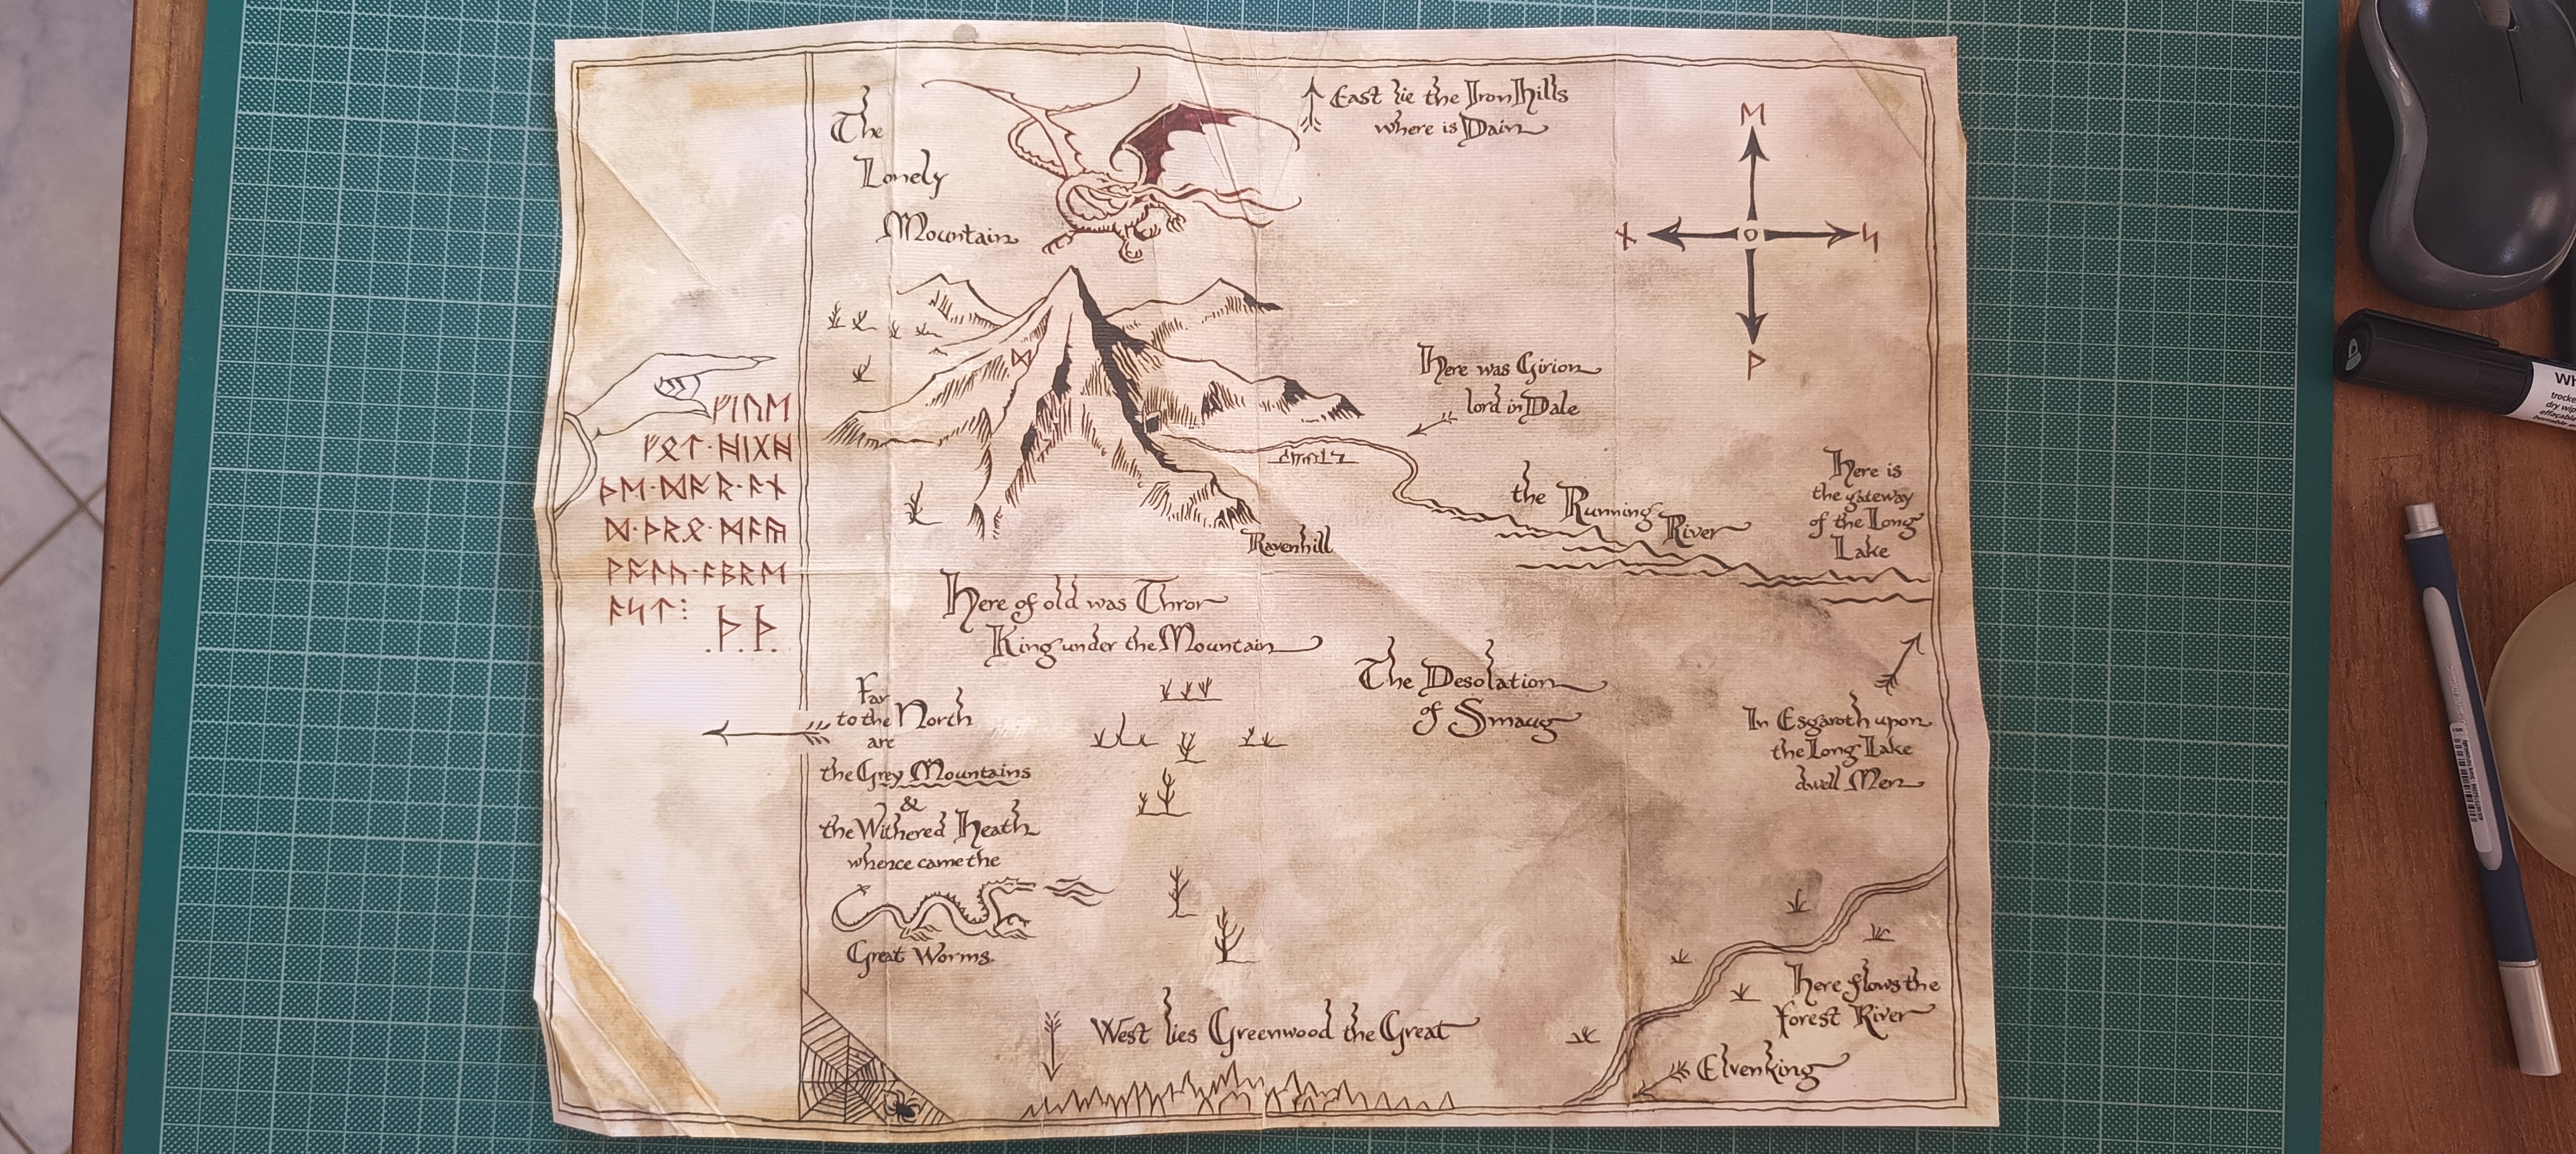 The
Lonely
Mountain
East lie the Iron Hills
where is Dain
ᛖ
ᚾ
ᛋ
ᚹ
ᛞ
ᚠᛁᚢᛖ
ᚠᛟᛏ᛫ᚻᛁᚷᚻ
ᚦᛖ᛫ᛞᚩᚱ᛫ᚫᚾ
ᛞ᛫ᚦᚱᛟ᛫ᛗᚫᚣ
ᚹᚫᛚᚳ᛫ᚫᛒᚱᛖ
ᚫᛋᛏ⁝
.ᚦ.ᚦ.
Here was Girion
lord in Dale
the Running
River
Here is
the gateway
of the Long
Lake
Ravenhill
Here of old was Thror
King under the Mountain
The Desolation
of Smaug
Far
to the North
are
the Grey Mountains
&
the Withered Heath
whence came the
Great Worms.
In Esgaroth upon
the Long Lake
dwell Men
West lies Greenwood the Great
Here flows the
Forest River
Elvenking